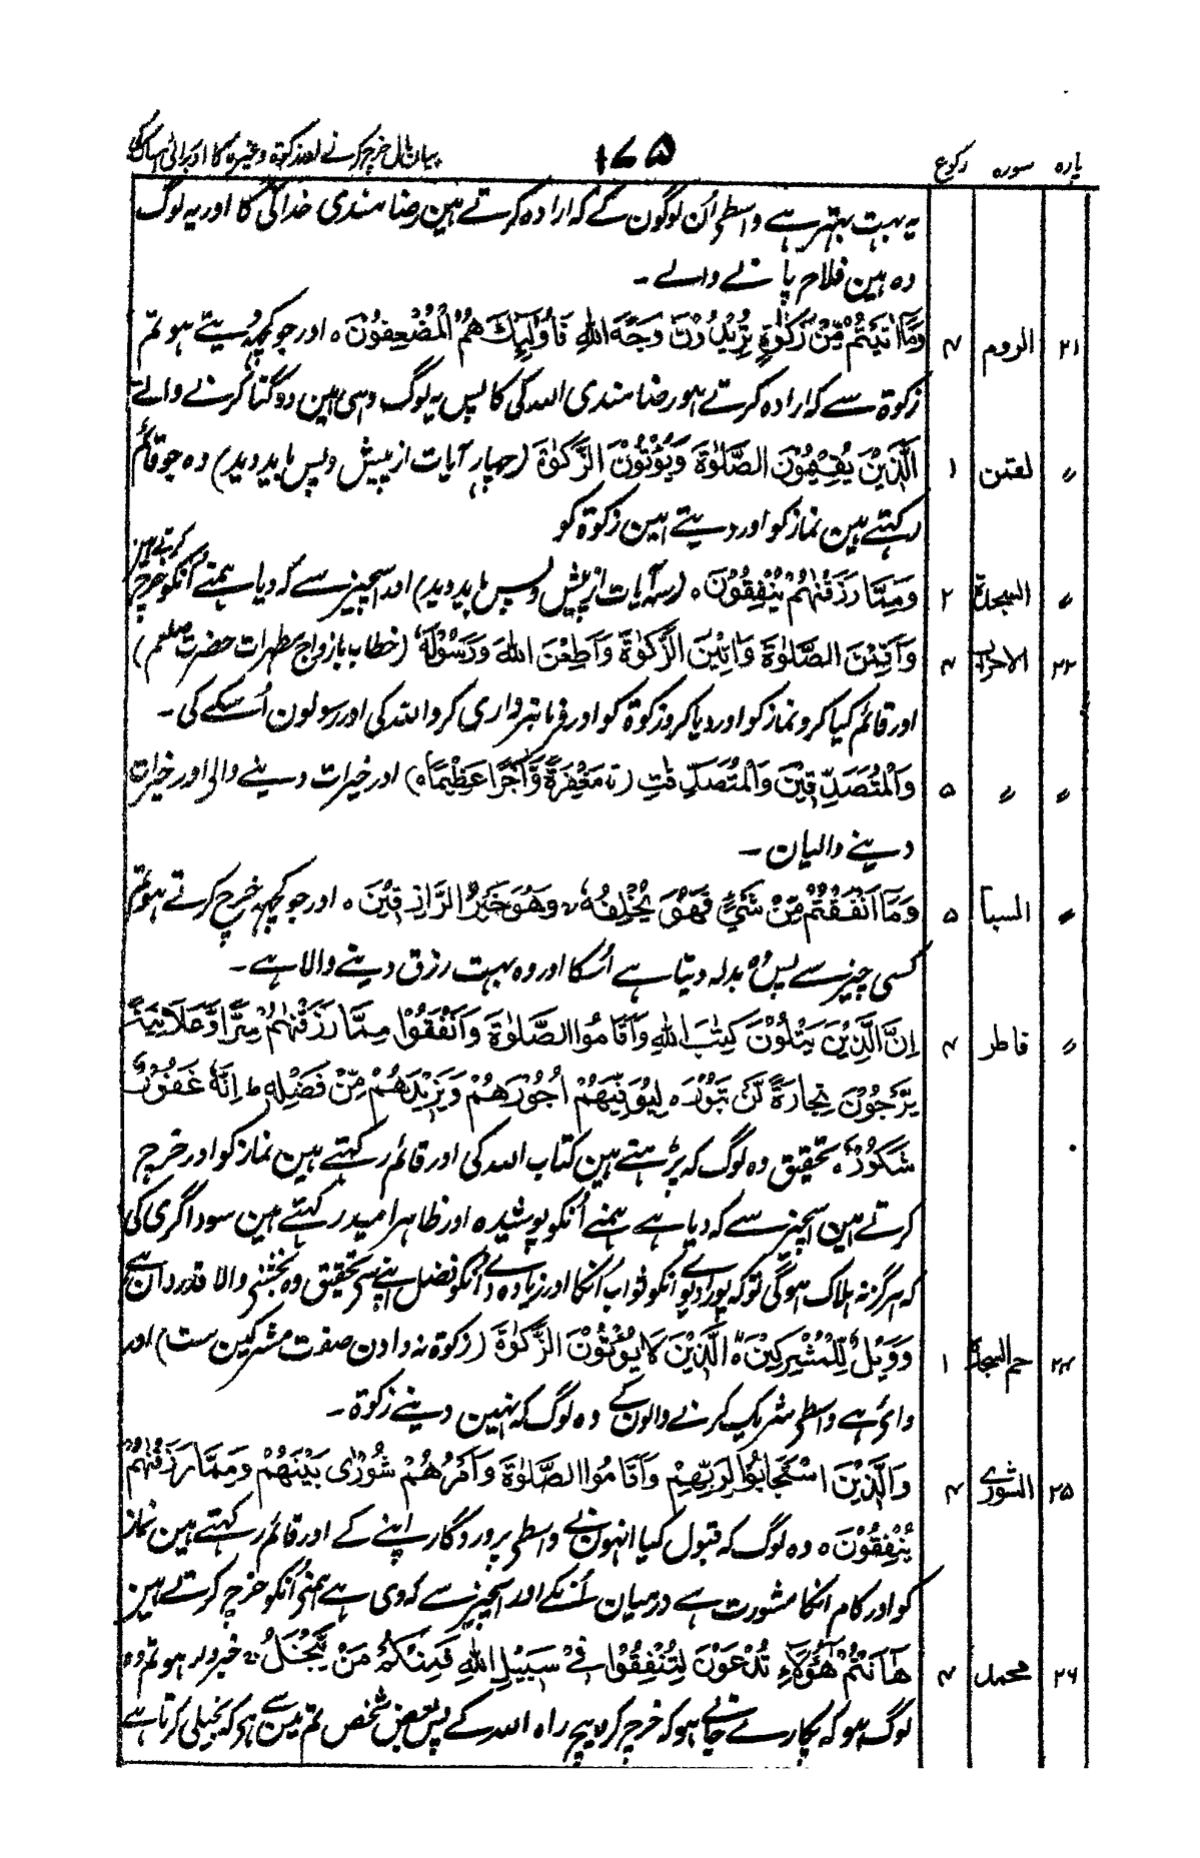 پارہ سورہ رکوع ۱۷۵ بیان مال خرچ کرنے اور زکوۃ وغیرہ کا اور برائی امساک کی
یہ بہت بہتر ہے واسطے اُن لوگون کے کہ ارادہ کرتے ہین رضامندی خدا کی کا اور یہ لوگ
وہ ہین فلاح پانے والے ۔
۲۱ الروم ۴ وَمَآ اٰتَيْتُمْ مِّنْ زَكٰوةٍ تُرِيْدُوْنَ وَجْهَ اللّٰهِ فَاُولٰٓئِكَ هُمُ الْمُضْعِفُوْنَ ٥ اور جو کچہہ دیتے ہو تم
زکوۃ سے کہ ارادہ کرتے ہو رضامندی اللہ کی کا پس یہ لوگ وہی ہین دوگنا کرنے والے
〃 لقمٰن ۱ الَّذِيْنَ يُقِيْمُوْنَ الصَّلٰوةَ وَيُؤْتُوْنَ الزَّكٰوةَ (چہار آیات از پیش و پس باید دید) وہ جو قائم
رکہتے ہین نماز کو اور دیتے ہین زکوۃ کو
〃 السجدۃ ۲ وَمِمَّا رَزَقْنٰهُمْ يُنْفِقُوْنَ ٥ (سہ آیات از پیش و پس باید دید) اور اسچیز سے کہ دیا ہے ہمنے اُنکو خرچ کرتے ہین
۲۲ الاحزاب ۴ وَاَقِمْنَ الصَّلٰوةَ وَاٰتِيْنَ الزَّكٰوةَ وَاَطِعْنَ اللّٰهَ وَرَسُوْلَهٗ (خطاب بازواج مطہرات حضرت صلعم)
اور قائم کیا کرو نماز کو اور دیا کرو زکوۃ کو اور فرمانبرداری کرو اللہ کی اور رسولون اُسکے کی ۔
〃 〃 ۵ وَالْمُتَصَدِّقِيْنَ وَالْمُتَصَدِّقٰتِ (تہ مَغْفِرَةً وَّاَجْرًا عَظِيْمًا ٥) اور خیرات دینے والے اور خیرات
دینے والیان ۔
〃 السبا ۵ وَمَآ اَنْفَقْتُمْ مِّنْ شَيْءٍ فَهُوَ يُخْلِفُهٗ وَهُوَ خَيْرُ الرَّازِقِيْنَ ٥ اور جو کچہہ خرچ کرتے ہو تم
کسی چیز سے پس وہ بدلہ دیتا ہے اُسکا اور وہ بہت رزق دینے والا ہے ۔
〃 فاطر ۴ اِنَّ الَّذِيْنَ يَتْلُوْنَ كِتٰبَ اللّٰهِ وَاَقَامُوا الصَّلٰوةَ وَاَنْفَقُوْا مِمَّا رَزَقْنٰهُمْ سِرًّا وَّعَلَانِيَةً
يَّرْجُوْنَ تِجَارَةً لَّنْ تَبُوْرَ ٥ لِيُوَفِّيَهُمْ اُجُوْرَهُمْ وَيَزِيْدَهُمْ مِّنْ فَضْلِهٖ ط اِنَّهٗ غَفُوْرٌ
شَكُوْرٌ ٥ تحقیق وہ لوگ کہ پڑہتے ہین کتاب اللہ کی اور قائم رکہتے ہین نماز کو اور خرچ
کرتے ہین اسچیز سے کہ دیا ہے ہمنے اُنکو پوشیدہ اور ظاہر امید رکہتے ہین سوداگری کی
کہ ہرگز نہ ہلاک ہوگی تو کہ پورا دیوے اُنکو ثواب اُنکا اور زیادہ دے اُنکو فضل اپنے سے تحقیق وہ بخشنے والا قدردان ہے
۲۴ حم السجدۃ ۱ وَوَيْلٌ لِّلْمُشْرِكِيْنَ ٥ الَّذِيْنَ لَا يُؤْتُوْنَ الزَّكٰوةَ (زکوۃ نہ دادن صفت مشرکین ست) اور
وائے ہے واسطے شریک کرنے والون کے وہ لوگ کہ نہین دیتے زکوۃ ۔
۲۵ الشوریٰ ۴ وَالَّذِيْنَ اسْتَجَابُوْا لِرَبِّهِمْ وَاَقَامُوا الصَّلٰوةَ وَاَمْرُهُمْ شُوْرٰى بَيْنَهُمْ وَمِمَّا رَزَقْنٰهُمْ
يُنْفِقُوْنَ ٥ وہ لوگ کہ قبول کیا انہون نے واسطے پروردگار اپنے کے اور قائم رکہتے ہین نماز
کو اور کام انکا مشورت ہے درمیان اُنکے اور اسچیز سے کہ دی ہے ہمنے اُنکو خرچ کرتے ہین
۲۶ محمد ۴ هٰٓاَنْتُمْ هٰٓؤُلَآءِ تُدْعَوْنَ لِتُنْفِقُوْا فِيْ سَبِيْلِ اللّٰهِ فَمِنْكُمْ مَّنْ يَّبْخَلُ خبردار ہو تم وہ
لوگ ہو کہ پکارے جاتے ہو کہ خرچ کرو بیچ راہ اللہ کے پس بعض شخص تم مین سے ہے کہ بخیلی کرتا ہے